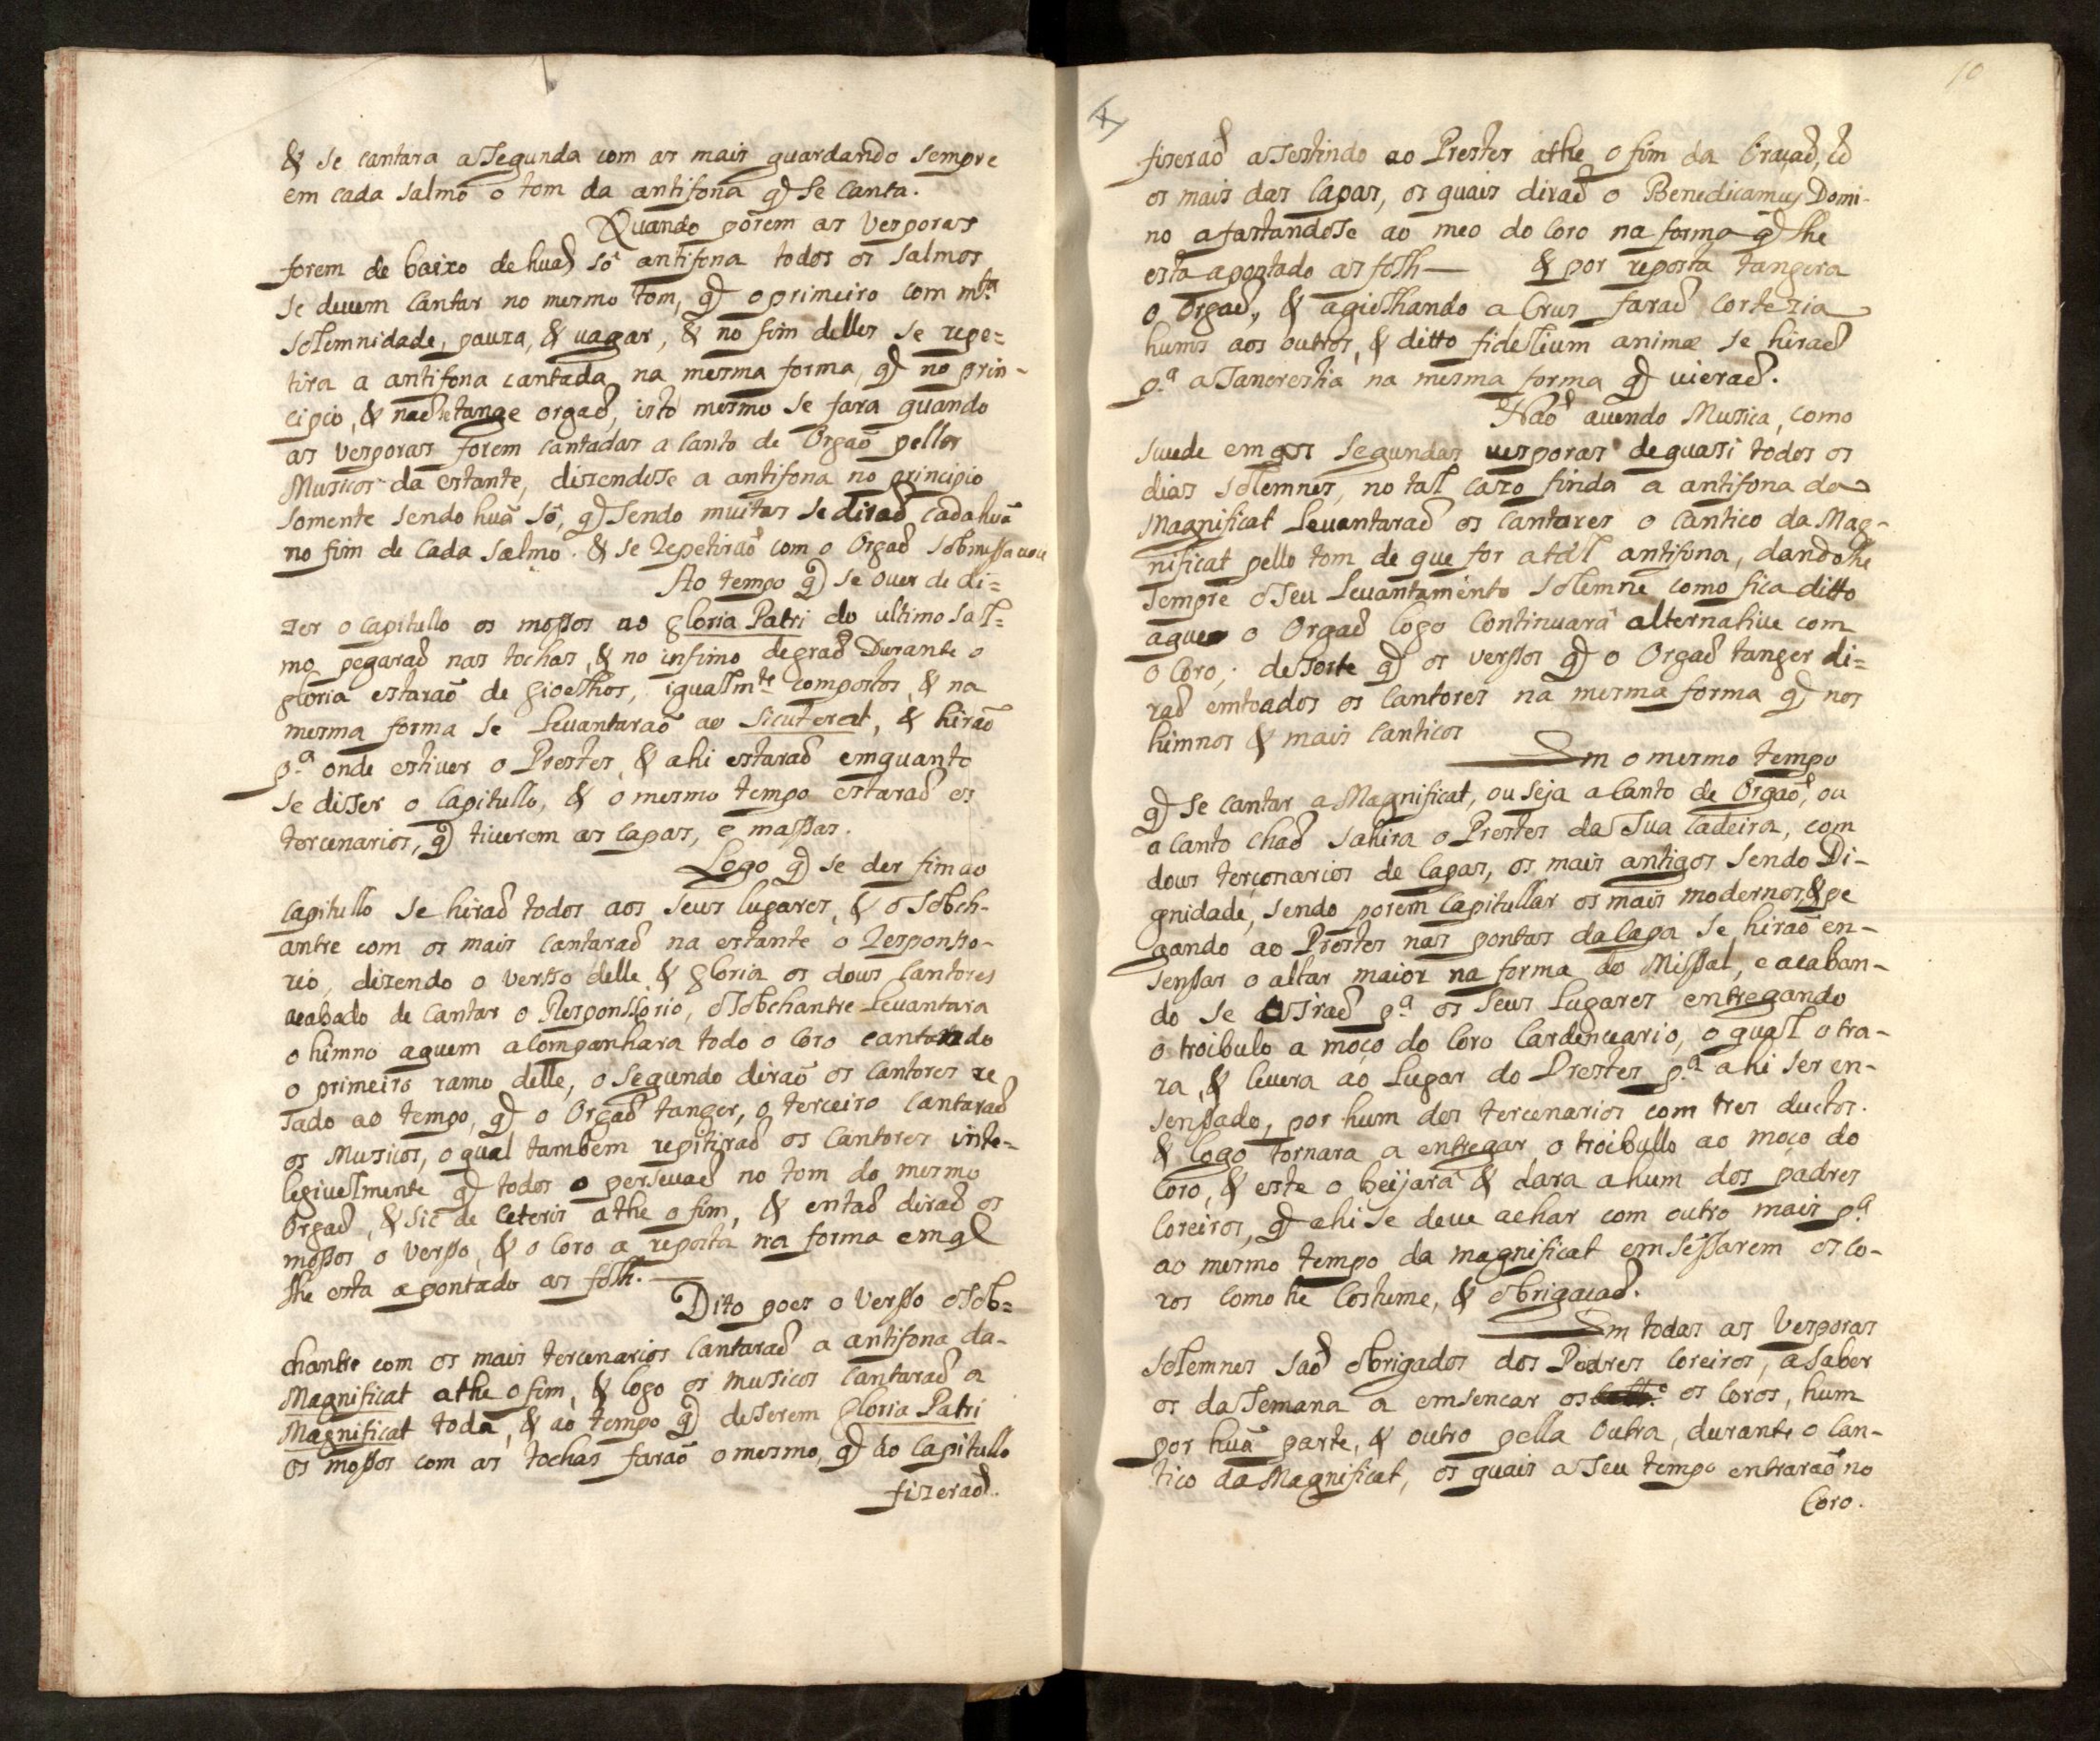 & se cantara a Segunda com as mais guardando sempre
em cada salmo o tom da antifona q̃ Se canta.
Quando porem as Vesporas
forem de baixo de huã só antifona todos os salmos
se deuem cantar no mesmo tom, q̃ o primeiro com m.ta
solemnidade, pauza, & uagar, & no fim delles se repe=
tira a antifona cantada na mesma forma, q̃ no prin-
cipio, & naõ se tange orgaõ, isto mesmo se fara quando
as vesporas forem cantadas a canto de Orgaõ pellos
Musicos da estante, dizendose a antifona no principio
somente sendo huã só, q̃ sendo muitas se diraõ cada huã
no fim de cada salmo. & se Repetiraõ com o Orgaõ sobmissa uoce
Ao tempo q̃ se ouer de di=
zer o Capitullo os mossos ao gloria Patri do ultimo sal=
mo pegaraõ nas tochas, & no infimo degraõ Durante o
gloria estaraõ de gioelhos, igualm.te compostos, & na
mesma forma se Leuantaraõ ao Sicut erat, & hiraõ
p.a onde estiuer o Prestes, & ahi estaraõ emquanto
se disser o Capitullo, & o mesmo tempo estaraõ os
tercenarios, q̃ tiuerem as capas, e massas.
Logo q̃ se der fim ao
Capitullo se hiraõ todos aos seus lugares, & o Sobch-
antre com os mais cantaraõ na estante o Responso-
rio, dizendo o verso delle & gloria os dous Cantores
acabado de Cantar o Responssorio, o Sobchantre Leuantara
o himno aquem acompanhara todo o Coro cantando
o primeiro ramo delle, o Segundo diraõ os Cantores re
sado ao tempo, q̃ o Orgaõ tanger, o terceiro cantaraõ
os Musicos, o qual tambem repitiraõ os Cantores inte=
legiuelmente q̃ todos o perseuaõ no tom do mesmo
Orgaõ, & sic de ceteris athe o fim, & entaõ diraõ os
mossos o Verso, & o Coro a reposta na forma em q̃
lhe esta apontado as folh.
Dito poes o Verso o Sob=
chantre com os mais tercenarios Cantaraõ a antifona da-
Magnificat athe o fim, & logo os musicos Cantaraõ a
Magnificat toda, & ao tempo q̃ disserem gloria Patri
os mossos com as tochas faraõ o mesmo, q̃ ao Capitullo
fizeraõ.
10
fizeraõ assestindo ao Prestes athe o fim da Oraçaõ, cõ
os mais das Capas, os quais diraõ o Benedicamus Domi-
no afastandose ao meo do Coro na forma q̃ lhe
esta apontado as folh— & por reposta tangera
o Orgaõ, & agiolhando a Crus faraõ cortezia
huns aos outros, & ditto fidelium animæ se hiraõ
p.a a Sancrestia na mesma forma q̃ uieraõ.
Naõ auendo Musica, como
suuede em as Segundas uesporas de quasi todos os
dias solemnes, no tal cazo finda a antifona da
Magnificat Leuantaraõ os Cantores o Cantico da Mag-
nificat pello tom de que for a tal antifona, dandolhe
sempre o seu Leuantamento solemne como fica ditto
aque o Orgaõ Logo Continuará alternatiue com
o Coro; de sorte q̃ os versos q̃ o Orgaõ tanger di=
raõ emtoados os Cantores na mesma forma q̃ nos
himnos & mais Canticos
Em o mesmo tempo
q̃ se cantar a Magnificat, ou seja a Canto de Orgaõ, ou
a canto chaõ sahira o Prestes da sua Cadeira, com
dous terçonarios de Capas, os mais antigos sendo Di-
gnidade, sendo porem Capitullar os mais modernos, & pe
gando ao Prestes nas pontas da Capa se hiraõ en-
sensar o altar maior na forma do Missal, e acaban-
do se uiraõ p.a os seus Lugares entregando
o troibulo a moço do Coro Cardencuario, o qual o tra-
ra, & leuera ao Lugar do Prestes p.a ahi ser en-
sensado, por hum dos tercenarios com tres ductos.
& logo tornara a entregar o troibullo ao moço do
Coro, & este o beijará & dara a hum dos padres
Coreiros, q̃ ahi se deue achar com outro mais p.a
ao mesmo tempo da magnificat emsessarem os co-
ros como he Costume, & obrigaçaõ.
Em todas as Vesporas
solemnes saõ obrigados dos Padres coreiros, a saber
os da Semana a emsencar os os Coros, hum
por huã parte, & outro pella Outra, durante o Can-
tico da Magnificat, os quais a seu tempo entraraõ no
Coro.